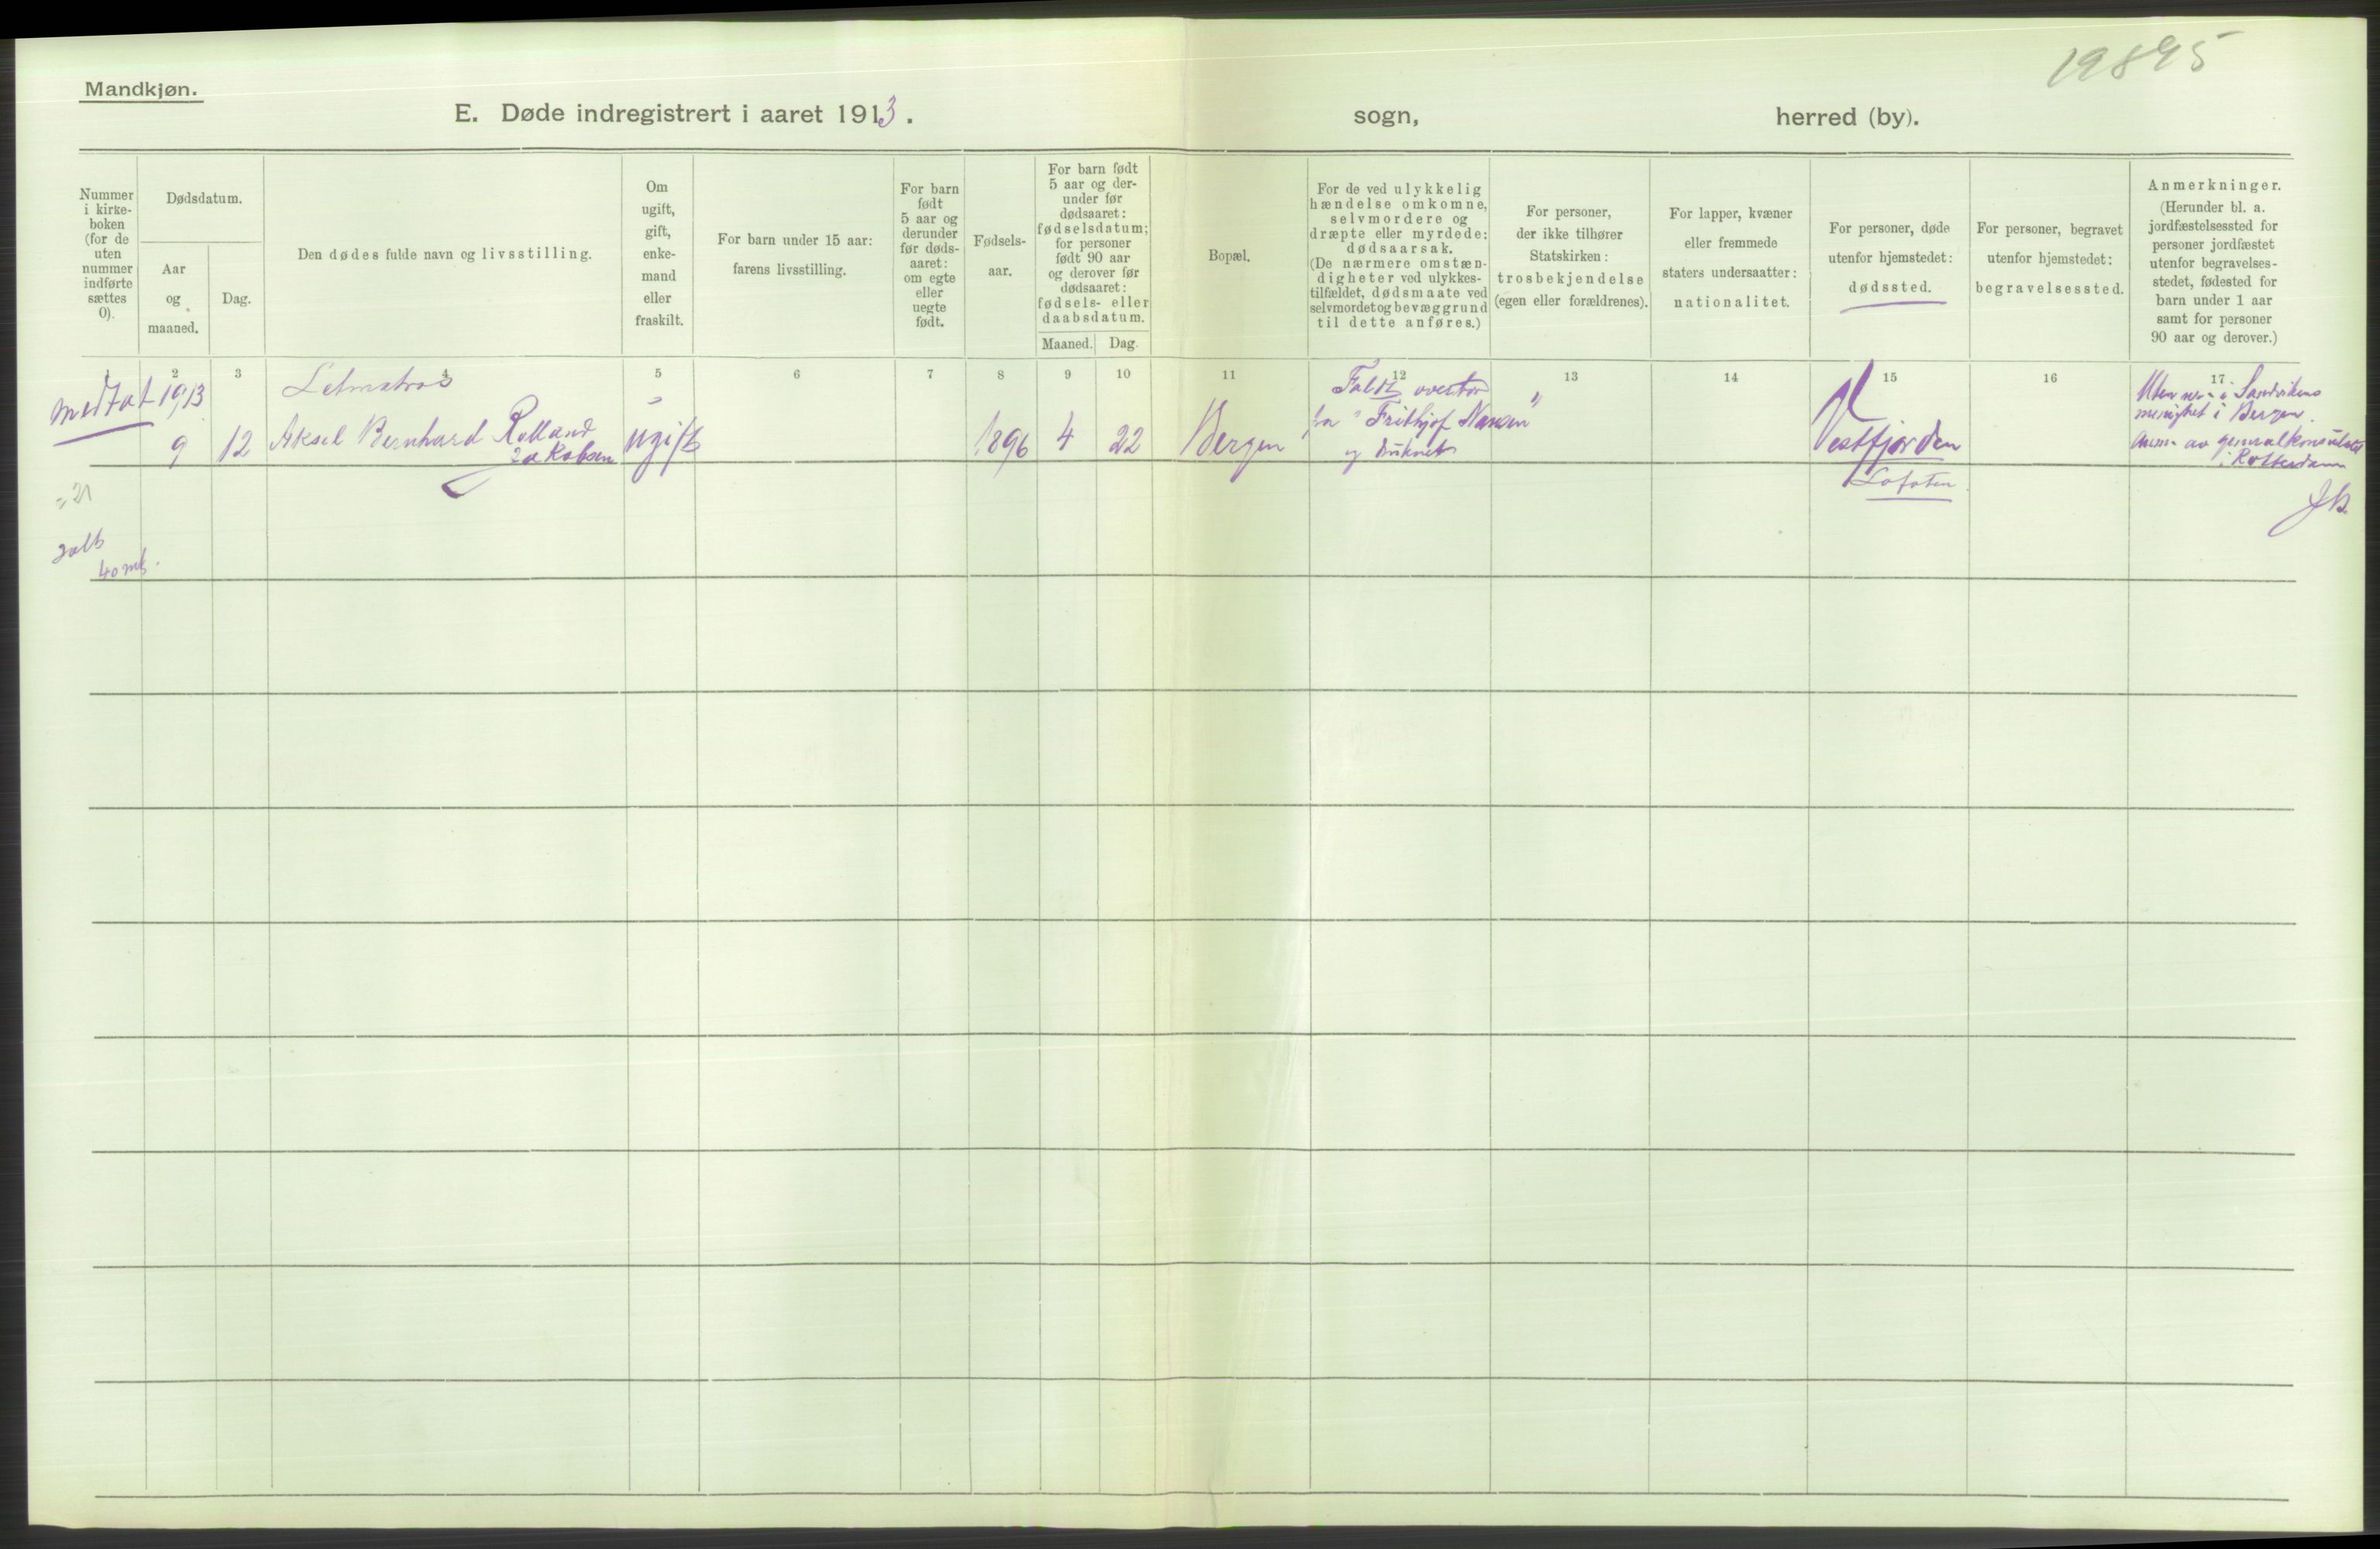 19895
Mandkjøn.
E. Døde indregistrert i aaret 1913. sogn, herred (by).
Nummer
i kirke-
boken
(for de
uten
nummer
indførte
sættes
0).
Dødsdatum.
Aar
og
maaned.
Dag.
Den dødes fulde navn og livsstilling.
Om
ugift,
gift,
enke-
mand
eller
fraskilt.
For barn under 15 aar:
farens livsstilling.
For barn
født
5 aar og
derunder
før døds-
aaret:
om egte
eller
uegte
født.
Fødsels-
aar.
For barn født
5 aar og der-
under før
dødsaaret:
fødselsdatum;
for personer
født 90 aar
og derover før
dødsaaret:
fødsels- eller
daabsdatum.
Maaned. Dag.
Bopæl.
For de ved ulykkelig
hændelse omkomne,
selvmordere og
dræpte eller myrdede:
dødsaarsak.
(De nærmere omstæn-
digheter ved ulykkes-
tilfældet, dødsmaate ved
selvmordet og bevæggrund
til dette anføres.)
For personer,
der ikke tilhører
Statskirken:
trosbekjendelse
(egen eller forældrenes).
For lapper, kvæner
eller fremmede
staters undersaatter:
nationalitet.
For personer, døde
utenfor hjemstedet:
dødssted.
For personer, begravet
utenfor hjemstedet:
begravelsessted.
Anmerkninger.
(Herunder bl. a.
jordfæstelsessted for
personer jordfæstet
utenfor begravelses-
stedet, fødested for
barn under 1 aar
samt for personer
90 aar og derover.)
1 2 3 4 5 6 7 8 9 10 11 12 13 14 15 16 17
medtat 1913
9 12
Letmatros
Aksel Bernhard Rolland
Jakobsen
ugift
1896 4 22
Bergen
Faldt overbord
fra "Frithjof Nansen"
og druknet
Vestfjorden
Lofoten
Uten nr. i Sandvikens
menighet i Bergen.
Anm. av generalkonsulatet
i Rotterdam
21
40 mb.